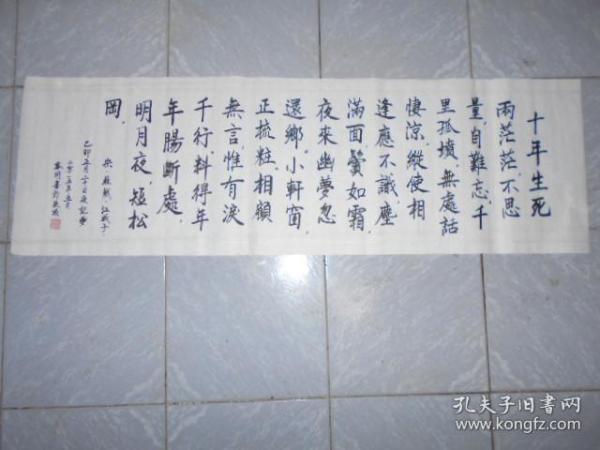 十年生死
兩茫茫，不思
量，自難忘，千
里孤墳，無處話
悽涼，縱使相
逢應不識，塵
滿面鬢如霜，
夜來幽夢忽
還鄉，小軒窗，
正梳粧，相顧
無言，惟有淚
千行，料得年
年腸斷處，
明月夜，短松
岡，
宋 蘇軾 江城子
乙卯正月二十日夜記夢
二零一五年五月
孔夫子旧書网
www.kongfz.com